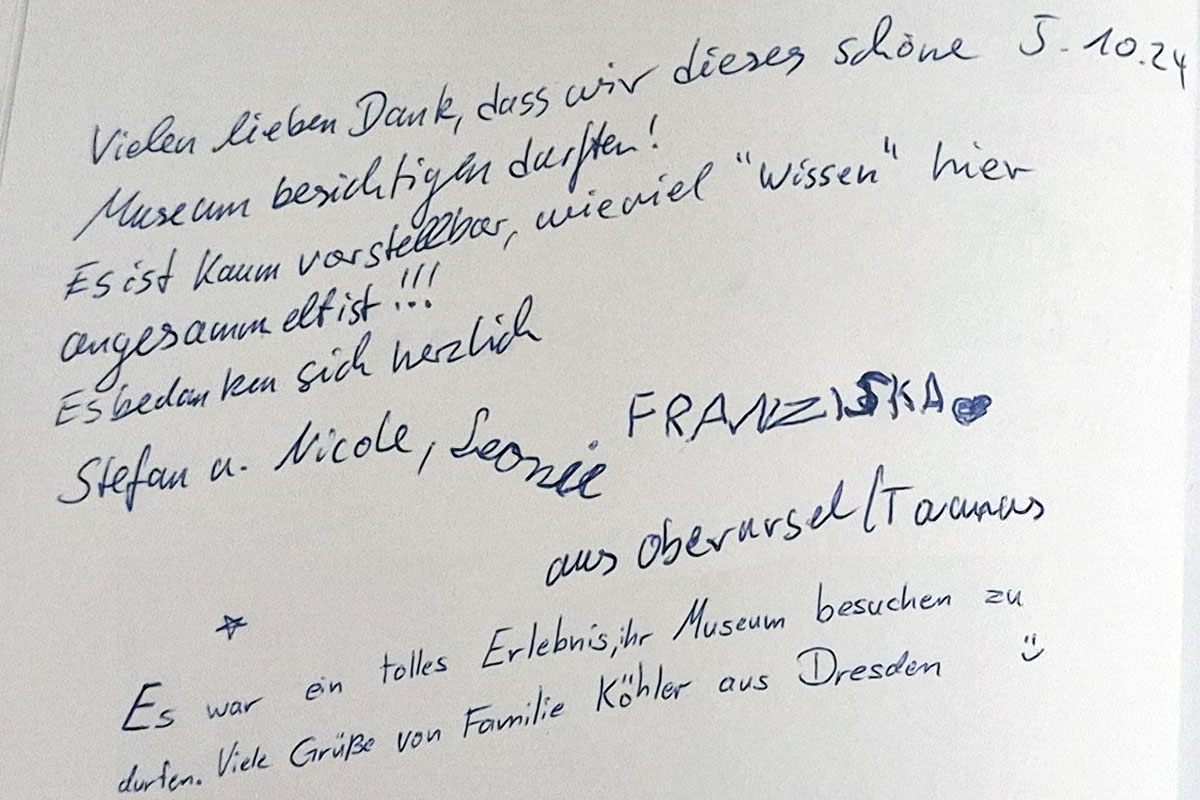 Vielen lieben Dank, dass wir dieses schöne 5.10.24
Museum besichtigen durften!
Es ist kaum vorstellbar, wieviel "Wissen" hier
angesammelt ist!!!
Es bedanken sich herzlich
Stefan u. Nicole, Leonie. FRANZISKA
aus Oberursel/Taunus
Es war ein tolles Erlebnis, ihr Museum besuchen zu
durfen. Viele Grüße von Familie Köhler aus Dresden